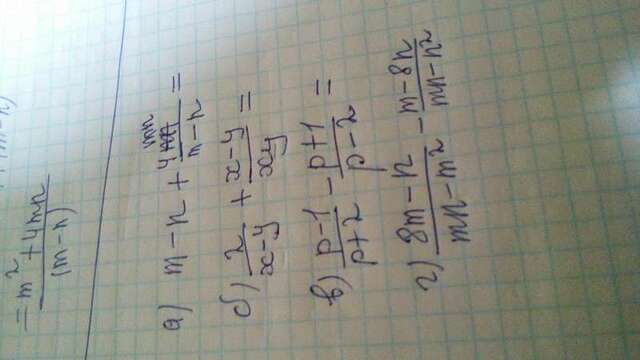 (m-n)
= m² + 4mn / (m-n)
а) m - n + 4mn / m - n =
б) 2 / x - y + x - y / xy =
в) p - 1 / p + 2 - p + 1 / p - 2 =
г) 8m - n / mn - m² - m - 8n / mn - n²